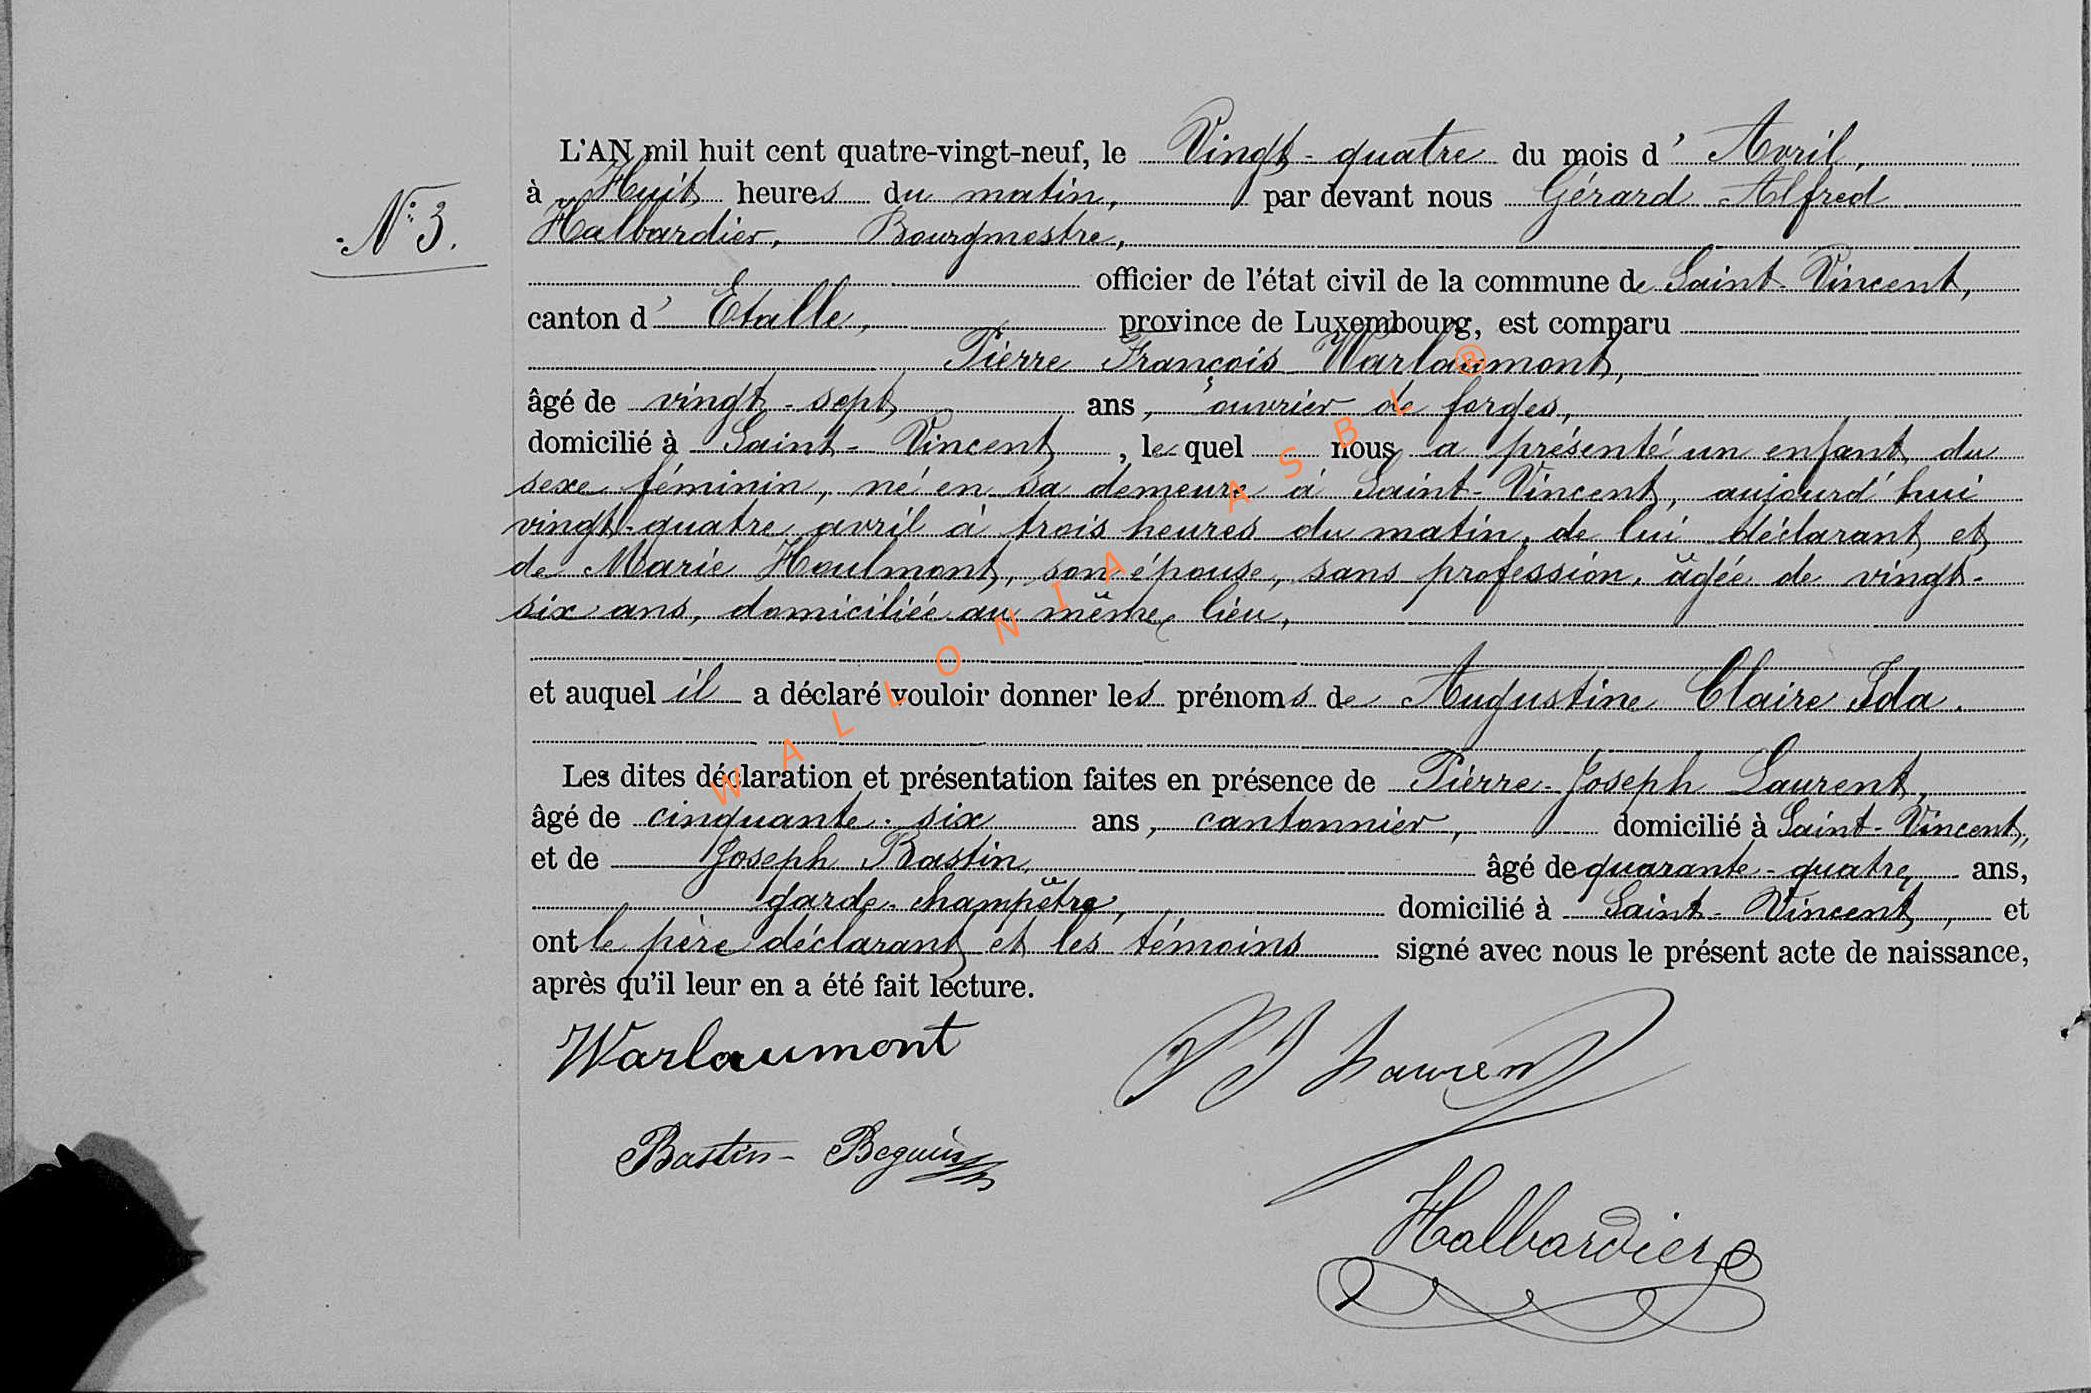 L'AN mil huit cent quatre-vingt-neuf, le Vingt-quatre du mois d' Avril,
à Huit heures du matin, par devant nous Gérard Alfred
N° 3.
Halbardier, Bourgmestre,
officier de l'état civil de la commune de Saint-Vincent,
canton d' Etalle, province de Luxembourg, est comparu
Pierre François Warlaumont,
âgé de vingt-sept ans, ouvrier de forges,
domicilié à Saint-Vincent, lequel nous a présenté un enfant du
sexe féminin, né en sa demeure à Saint-Vincent, aujourd'hui
vingt-quatre avril à trois heures du matin, de lui déclarant et
de Marie Houlmont, son épouse, sans profession, âgée de vingt-
six ans, domiciliée au même lieu,
et auquel il a déclaré vouloir donner les prénoms de Augustine Claire Ida.
Les dites déclaration et présentation faites en présence de Pierre-Joseph Laurent,
âgé de cinquante-six ans, cantonnier, domicilié à Saint-Vincent,
et de Joseph Bastin, âgé de quarante-quatre ans,
garde-champêtre, domicilié à Saint-Vincent, et
ont le père déclarant et les témoins signé avec nous le présent acte de naissance,
après qu'il leur en a été fait lecture.
Warlaumont
PJ Laurent
Bastin-Beguin
Halbardier
WALLONIA ASBL ®